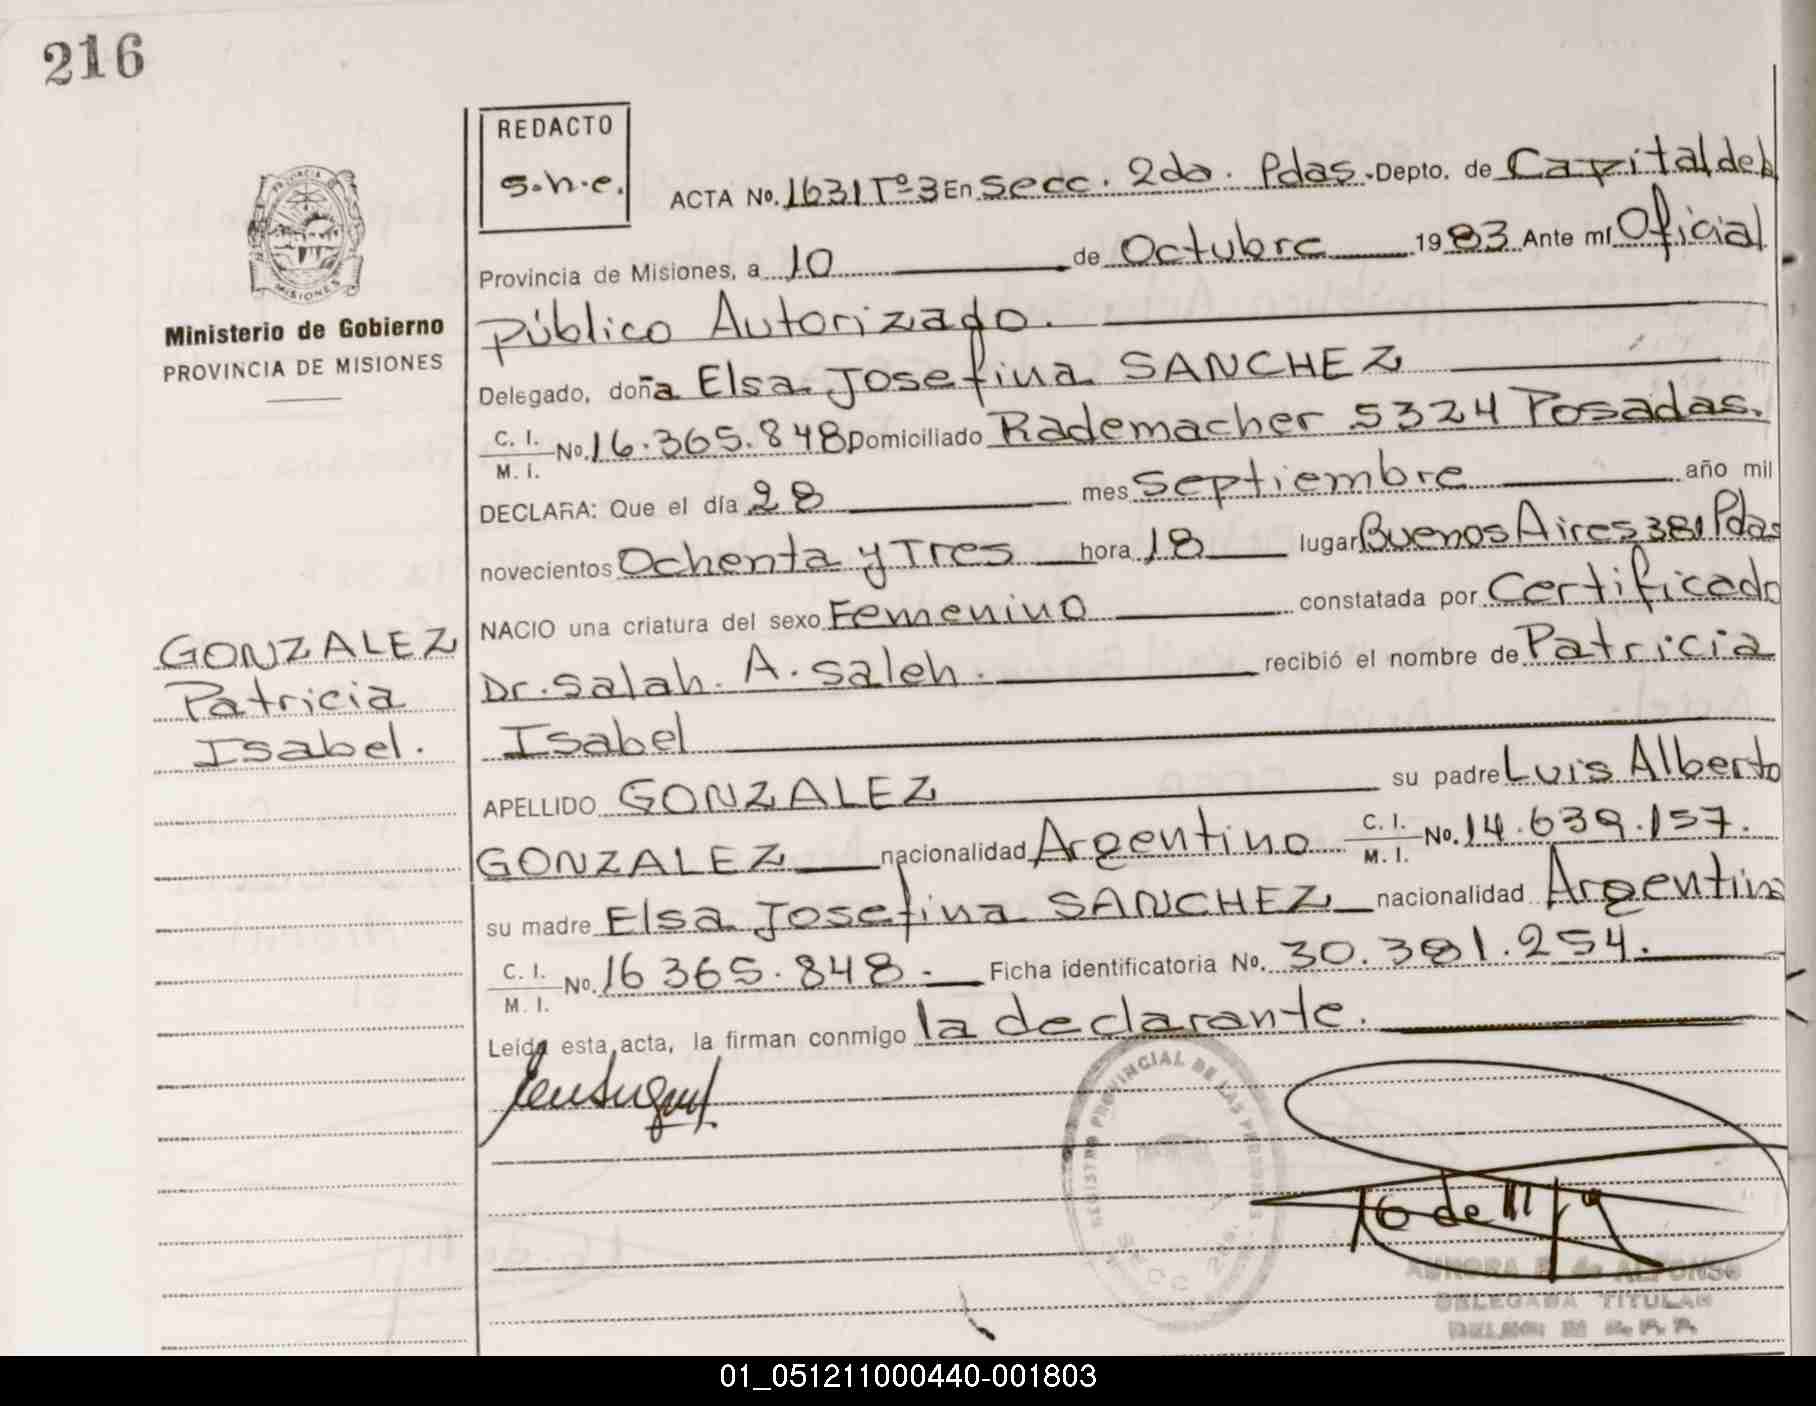 216
REDACTO
s.h.e.
PROVINCIA
MISIONES
Ministerio de Gobierno
PROVINCIA DE MISIONES
GONZALEZ
Patricia
Isabel.
ACTA No. 1631 Tº 3 En secc. 2da. Pdas. Depto. de Capital de la
Provincia de Misiones, a 10 de Octubre 1983 Ante mí Oficial
Público Autorizado.
Delegado, doña Elsa Josefina SANCHEZ
C. I. M. I. No. 16.365.848 Domiciliado Rademacher 5324 Posadas.
DECLARA: Que el día 28 mes septiembre año mil
novecientos Ochenta y Tres hora 18 lugar Buenos Aires 381 Pdas
NACIO una criatura del sexo Femenino constatada por Certificado
Dr. Salah. A. Saleh. recibió el nombre de Patricia
Isabel
APELLIDO GONZALEZ su padre Luis Alberto
GONZALEZ nacionalidad Argentino C. I. M. I. No. 14.639.157.
su madre Elsa Josefina SANCHEZ nacionalidad Argentina
C. I. M. I. No. 16 365.848. Ficha identificatoria No. 30.381.254.
Leída esta acta, la firman conmigo la declarante.
REGISTRO PROVINCIAL DE LAS PERSONAS
SECC 2da.
AURORA de ALFONSO
DELEGADA TITULAR
01_051211000440-001803